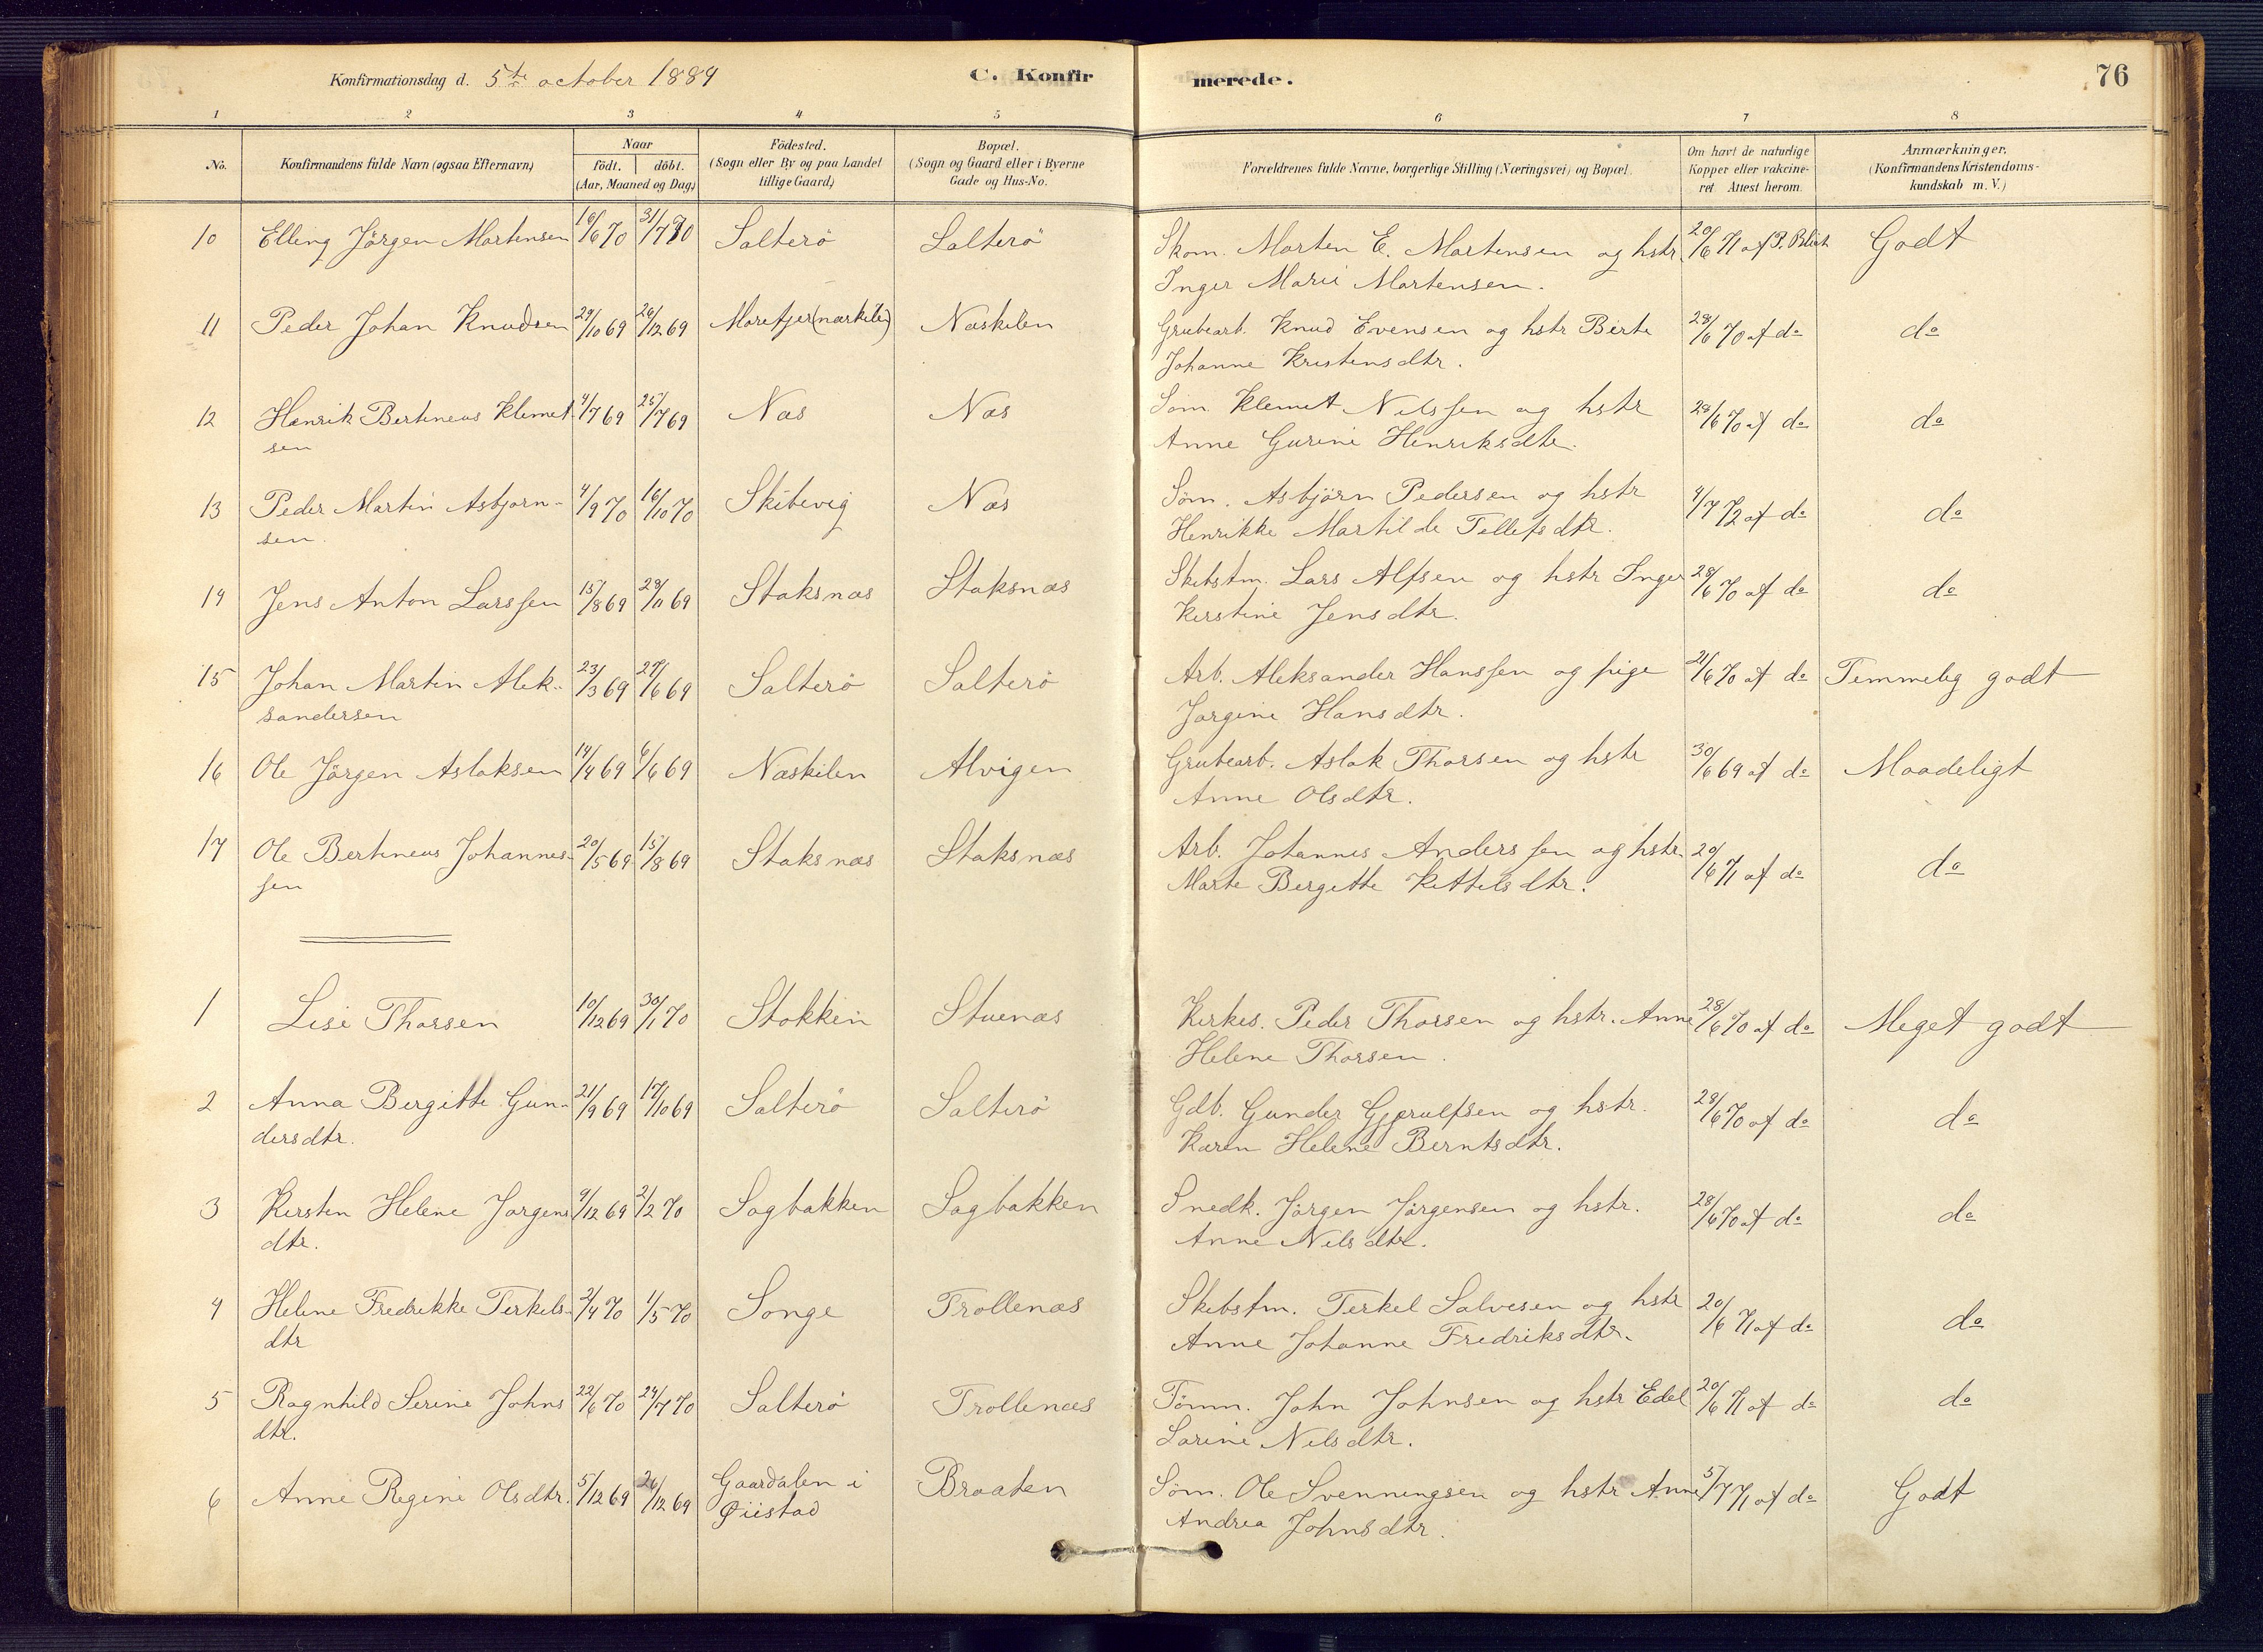 Konfirmationsdag d. 5te october 1884 C. Konfirmerede. 76
1 2 3 4 5 6 7 8
No. Konfirmandens fulde Navn (ogsaa Efternavn) Naar födt. döbt. (Aar, Maaned og Dag) Födested. (Sogn eller By og paa Landet tillige Gaard) Bopæl. (Sogn og Gaard eller i Byerne Gade og Hus-No. Forældrenes fulde Navne, borgerlige Stilling (Næringsvei) og Bopæl. Om havt de naturlige Kopper eller vakcineret. Attest herom. Anmærkninger. (Konfirmandens Kristendomskundskab m. V.)
10 Elling Jörgen Martensen 16/6 70 31/7 70 Salterö Salterö Skom. Marten E. Martensen og hstr. 20/6 71 af P. Godt
Inger Marie Martensen.
11 Peder Johan Knudsen 29/10 69 26/12 69 Næskilen Grubearb. Knud Evensen og hstr Birte 28/6 70 af do do
Johanne Kristensdtr.
12 Henrik Bertineus Klemet- 4/7 69 25/7 69 Næs Næs Söm. Klemet Nilssen og hstr 28/6 70 af do do
sen Anne Gurine Henriksdtr.
13 Peder Martin Asbjørn- 4/9 70 16/10 70 Skibevig Næs Söm. Asbjörn Pedersen og hstr 4/7 72 af do do
sen. Henrikke Martilde Tellefsdtr.
14 Jens Anton Larssen 15/8 69 Staksnæs Staksnæs Skibstm. Lars Alfsen og hstr Inger 28/6 70 af do do
Kerstine Jensdtr.
15 Johan Martin Alek- 23/3 69 27/6 69 Salterö Salterö Arb. Aleksander Hanssen og pige 21/6 70 af do Temmelig godt
sandersen Jørgine Hansdtr.
16 Ole Jörgen Aslaksen 14/4 69 6/6 69 Næskilen Alvigen Grubearb. Aslak Thorsen og hstr 30/6 69 af do Maadeligt
Anne Olsdtr.
17 Ole Bertineus Johannes- 20/5 69 15/8 69 Staksnæs Staksnæs Arb. Johannes Anderssen og hstr. 20/6 71 af do do
sen Marte Bergitte Kittelsdtr.
1 Lise Thorsen 10/12 69 30/1 70 Stokken Stuenæs Kirkes. Peder Thorsen og hstr. Anne 28/6 70 af do Meget godt
Helene Thorsen.
2 Anna Bergitte Gun- 21/9 69 17/10 69 Salterö Salterö Gdb. Gunder Gjerulfsen og hstr. 28/6 70 af do do
dersdtr. Karen Helene Berntsdtr.
3 Kersten Helene Jørgens 9/12 69 2/2 70 Sagbakken Sagbakken Snedk. Jörgen Jörgensen og hstr. 28/6 70 af do do
dtr. Anne Nilsdtr.
4 Helene Fredrikke Terkels- 2/4 70 1/5 70 Songe Trollenæs Skibstm. Terkel Salvesen og hstr 20/6 71 af do do
dtr Anne Johanne Fredriksdtr.
5 Ragnhild Serine Johns 22/6 70 24/7 70 Salterö Trollenæs Tömm. John Johnsen og hstr Edel 20/6 71 af do do
dtr. Sarine Nilsdtr.
6 Anne Regine Olsdtr. 5/12 69 26/12 69 Gaardalen i Braaten Söm. Ole Svenningsen og hstr Anne 5/7 71 af do Godt
Øiestad Andrea Johnsdtr.